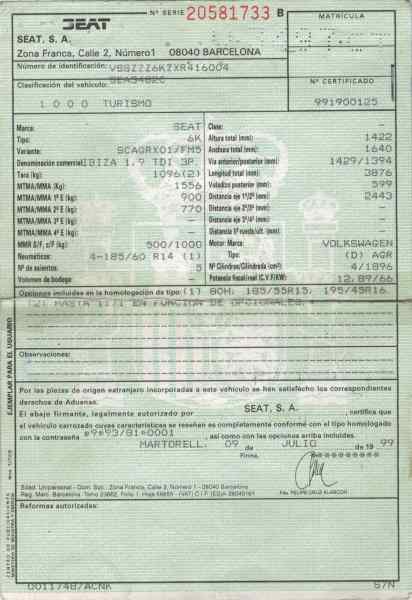 SEAT
Nº SERIE 20581733 B
MATRICULA
SEAT, S. A.
Zona Franca, Calle 2, Número1 08040 BARCELONA
Número de identificación: VSSZZZ6KZXR416004
Clasificación del vehículo:
Nº CERTIFICADO
1000 TURISMO
991900125
Marca: SEAT
Clase: —
Tipo: 6K
Altura total (mm): 1422
Variante: SCAGRX01/FM5
Anchura total (mm): 1640
Denominación comercial: IBIZA 1.9 TDI 3P.
Vía anterior/posterior (mm): 1429/1394
Tara (kg): 1096(2)
Longitud total (mm): 3876
MTMA/MMA (Kg): 1556
Voladizo posterior (mm): 599
MTMA/MMA 1º E (Kg): 900
Distancia eje 1º/2º (mm): 2443
MTMA/MMA 2º E (Kg): 770
Distancia eje 2º/3º (mm): —
MTMA/MMA 3º E (Kg): —
Distancia eje 3º/4º (mm): —
MTMA/MMA 4º E (Kg): —
MMR S/F, c/F (kg): 500/1000
Motor: Marca: VOLKSWAGEN
Neumáticos: 4-185/60 R14 (1)
Tipo: (D) AGR
Nº de asientos: 5
Nº Cilindros/Cilindrada (cm³): 4/1896
Volumen de bodega: —
Potencia fiscal/real (C.V.F/KW): 12,89/66
Opciones incluidas en la homologación de tipo: (1) BOM. 185/55R15. 195/45R16.
(2) HASTA 1171 EN FUNCION DE OPCIONALES.
EJEMPLAR PARA EL USUARIO
Observaciones:
Por las piezas de origen extranjero incorporadas a este vehículo se han satisfecho los correspondientes
derechos de Aduanas.
El abajo firmante, legalmente autorizado por SEAT, S. A. , certifica que
el vehículo carrozado cuyas características se reseñan es completamente conforme con el tipo homologado
con la contraseña e9*93/81*0001 , así como con las opciones arriba incluidas.
MARTORELL. 09 de JULIO de 19 99
Firma,
Fdo. FELIPE CRUZ ALARCON
Edad. Unipersonal - Dom. Soc.: Zona Franca, Calle 2, Número 1 - 08040 Barcelona
Reformas autorizadas:
0011748/ACNK
S/N